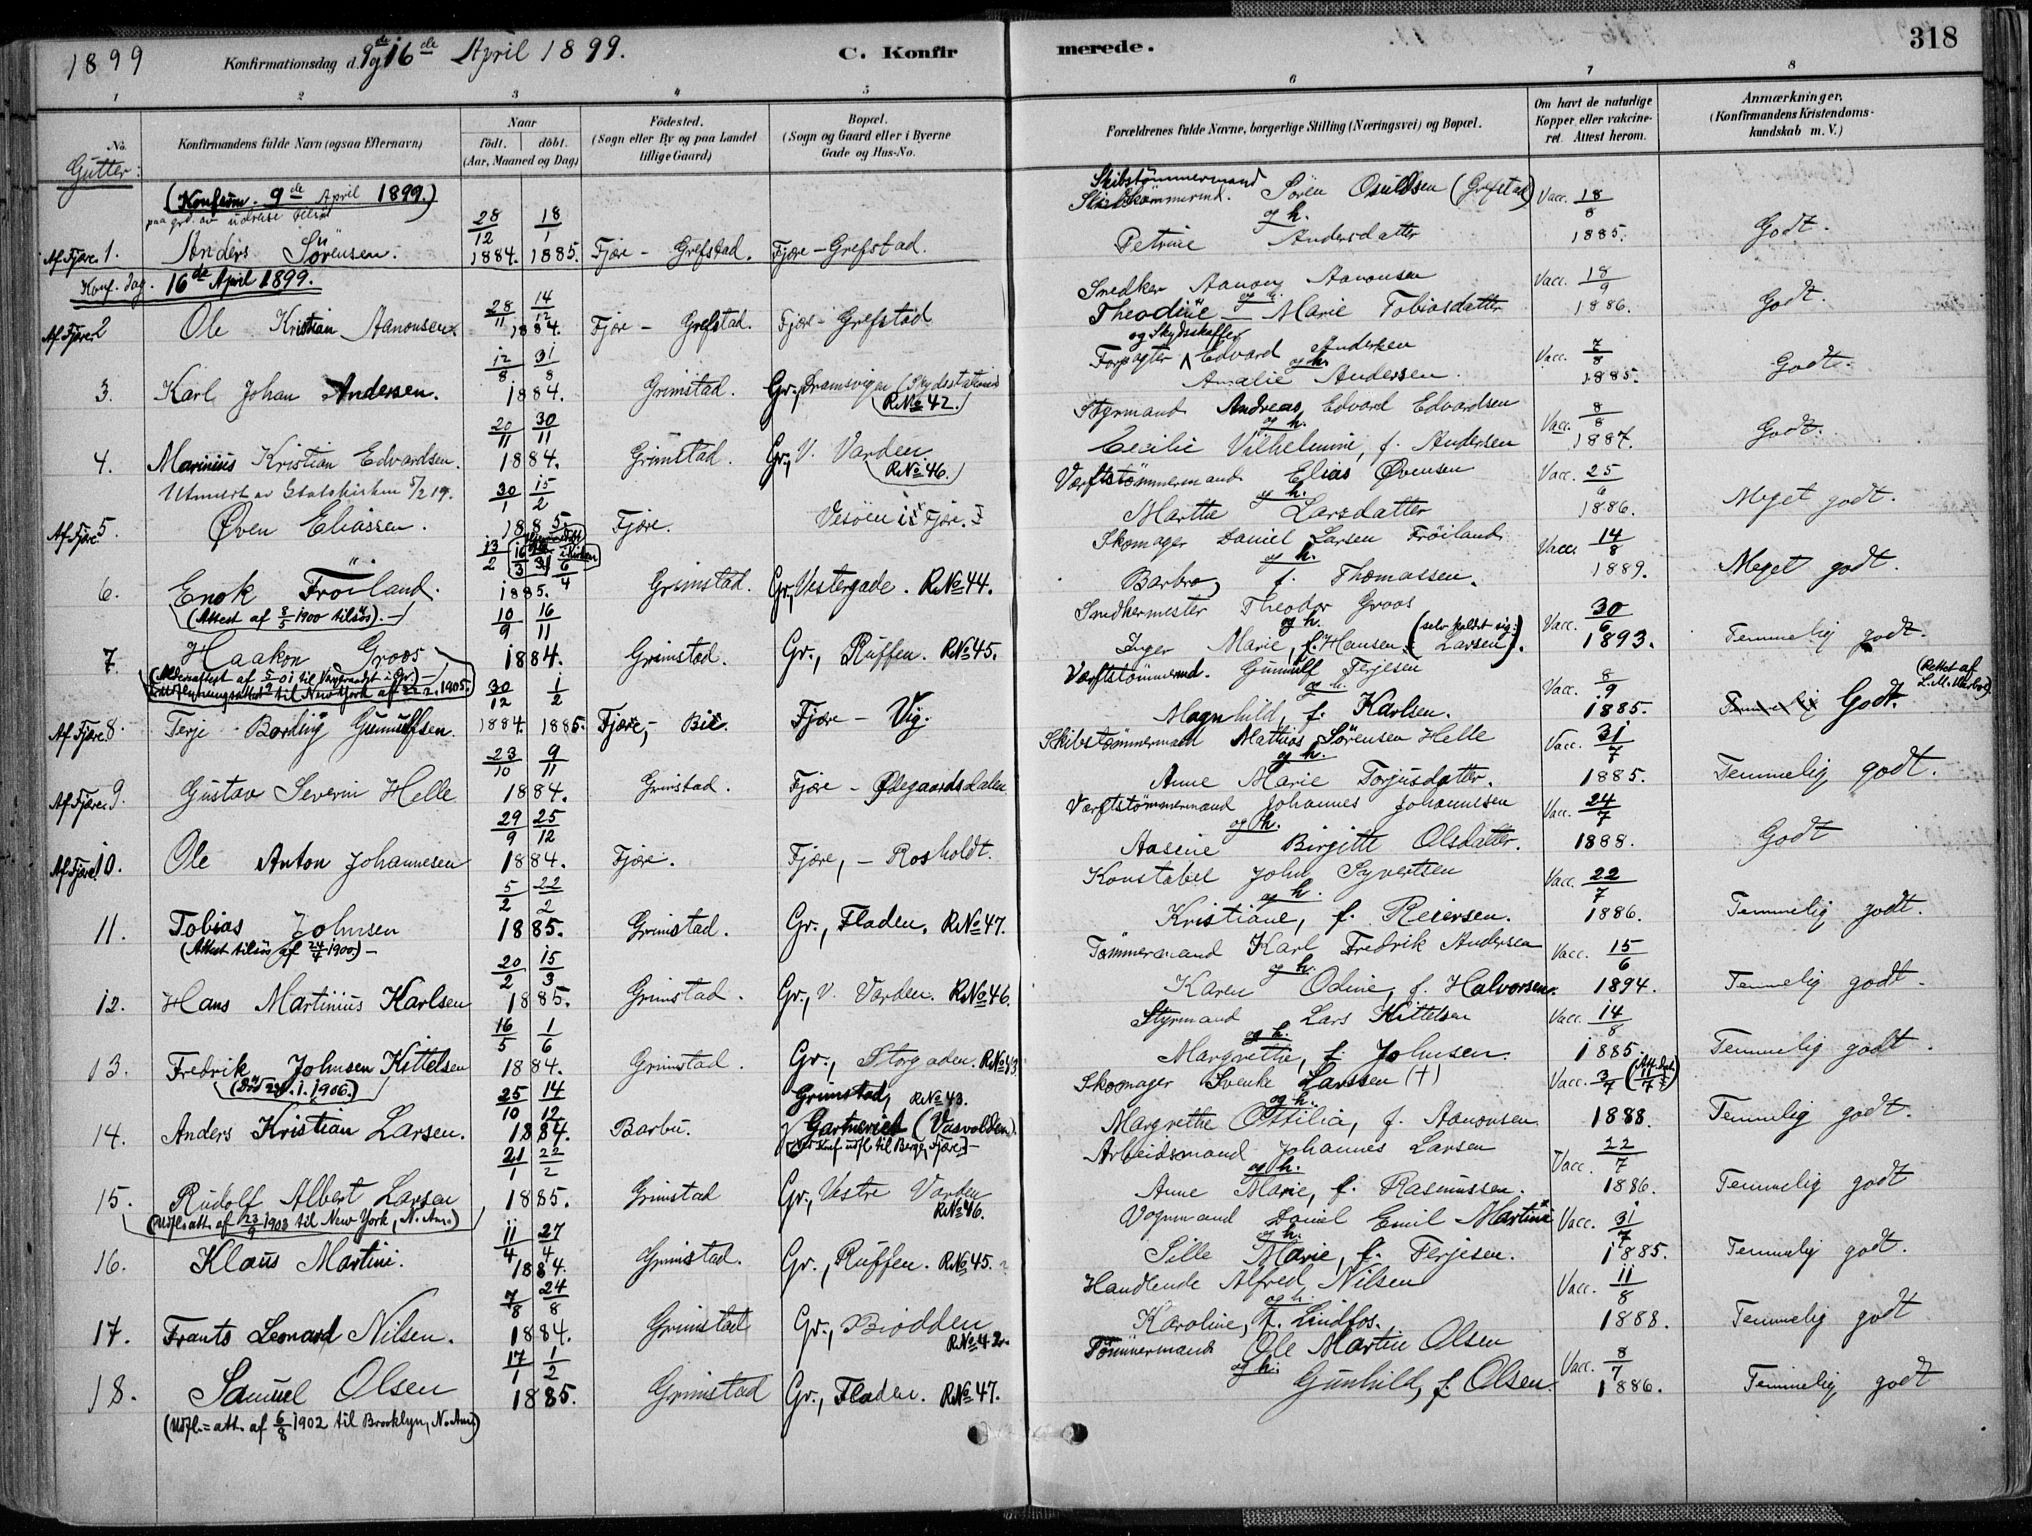 1899 Konfirmationsdag d. 9de og 16de April 1899. C. Konfirmerede. 318
1 2 3 4 5 6 7 8
No. Konfirmandens fulde Navn (ogsaa Efternavn) Naar født. døbt. (Aar, Maaned og Dag) Fødested. (Sogn eller By og paa Landet tillige Gaard) Bopæl. (Sogn og Gaard eller i Byerne Gade og Hus-No. Forældrenes fulde Navne, borgerlige Stilling (Næringsvei) og Bopæl. Om havt de naturlige Kopper eller vakcineret. Attest herom. Anmærkninger, (Konfirmandens Kristendomskundskab m. V.)
Gutter:
(Konfirm. 9de April 1899.)
Af Fjære 1. Anders Sörensen. 28/12 1884. 18/1 1885. Fjære - Grefstad. Fjære - Grefstad. Skibstömmermand Sören Osuldsen (Grefstad) og h. Petrine Andersdatter Vacc. 18/8 1885. Godt.
Konf. dag. 16de April 1899.
Af Fjære 2 Ole Kristian Aanonsen. 28/11 14/12 1884. Fjære - Grefstad. Fjære - Grefstad Snedker Aanon Aanonsen og h. Theodine Marie Tobiasdatter Vacc. 18/9 1886. Godt.
3. Karl Johan Andersen. 12/8 31/8 1884. Grimstad. Gr., Dramsvigen (Skydsstation) R.No 42. Forpagter og Skydsskaffer Edvard Andersen og h. Amalie Andersen. Vacc. 7/8 1885. Godt.
4. Marinius Kristian Edvardsen. 20/11 30/11 1884. Grimstad. Gr., V. Varden. R.No 46. Styrmand Andreas Edvard Edvardsen og h. Cecilie Vilhelmine, f. Andersen Vacc. 8/8 1887. Godt.
Utmeldt av Statskirken 5/2 19.
Af Fjære 5. Øven Eliassen. 30/1 15/2 1885. Fjære. Vesöen i Fjære. Værftstömmermand Elias Øvensen og h. Marthe Larsdatter Vacc. 25/6 1886. Meget godt.
6. Enok Fröiland. 13/2 1885. Grimstad. Gr., Vestergade. R.No 44. Skomager Daniel Larsen Fröiland og h. Barbro, f. Thomassen. Vacc. 14/8 1889. Meget godt.
(Attest af 8/5 1900 tilsös). -
7. Haakon Groos 10/9 16/11 1884. Grimstad. Gr., Ruffen. R.No 45. Snedkermester Theodor Groos og h. Inger Marie, f. Hansen. (selv kaldt sig: Larsen). Vacc. 30/6 1893. Temmelig godt.
Af Fjære 8. Terje Bording Gunnulfsen 30/12 1884. 1/2 1885. Fjære, - Bie. Fjære - Vig. Værftstömmermd. Gunnulf Terjesen og h. Magnhild, f. Karlsen. Vacc. 8/9 1885. Temmelig Godt. (Rettet af
Af Fjære 9. Gustav Severin Helle 23/10 9/11 1884. Grimstad. Fjære - Ødegaardsdalen Skibstömmermand Mathias Sörensen Helle og h. Anne Marie Torjusdatter. Vacc. 31/7 1885. Temmelig godt.
Af Fjære 10. Ole Anton Johannesen 29/9 25/12 1884. Fjære. Fjære, - Rosholdt. Værftstömmermand Johannes Johannesen og h. Aasine Birgitte Olsdatter. Vacc. 24/7 1888. Godt
11. Tobias Johnsen 5/2 22/2 1885. Grimstad. Gr., Fladen. R.No 47. Konstabel John Syvertsen og h. Kristiane, f. Reiersen. Vacc. 22/7 1886. Temmelig godt.
(Attest tilsös af 24/7 1900.) -
12. Hans Martinius Karlsen 20/2 15/3 1885. Grimstad. Gr., V. Varden. R.No 46. Tömmermand Karl Fredrik Andersen og h. Karen Odine, f. Halvorsen. Vacc. 15/6 1894. Temmelig godt.
13. Fredrik Johnsen Kittelsen 16/5 1/6 1884. Grimstad. Gr., Storgaden. R.No 43. Styrmand Lars Kittelsen og h. Margrethe, f. Johnsen. Vacc. 14/8 1885. Temmelig godt.
14. Anders Kristian Larsen. 25/10 14/12 1884. Barbu. Grimstad, R.No 43. Gartneriet (Vasvolden). Skomager Svenke Larssen (†) og h. Margrethe Ottilia, f. Aanonsen. Vacc. 3/7 1888. Temmelig godt.
15. Rudolf Albert Larsen 21/1 22/2 1885. Grimstad Gr., Vestre Varden R.No 46. Arbeidsmand Johannes Larsen og h. Anne Marie, f. Rasmussen. Vacc. 22/7 1886. Temmelig godt
(Udfl. att. af 23/9 1903 til New York, N. Am.)
16. Klaus Martini. 11/4 27/4 1884. Grimstad. Gr., Ruffen. R.No 45. Vognmand Daniel Emil Martini og h. Sille Marie, f. Terjesen. Vacc. 31/7 1885. Temmelig godt.
17. Frants Leonard Nilsen. 7/8 24/8 1884. Grimstad Gr., Biodden R.No 42. Handlende Alfred Nilsen og h. Karoline, f. Lindfos. Vacc. 11/8 1888. Temmelig godt
18. Samuel Olsen 17/1 1/2 1885. Grimstad Gr., Fladen. R.No 47. Tömmermand Ole Martin Olsen og h. Gunhild, f. Olsen. Vacc. 8/7 1886. Temmelig godt
(Udfl. = att. af 6/8 1902 til Brooklyn, N. Am.)